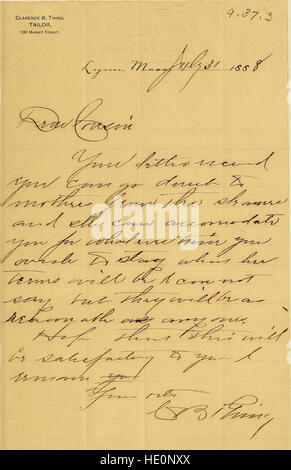 CLARENCE B. THING,
TAILOR,
130 MARKET STREET.
9.37.3
Lynn, Mass July 31 1888
Dear Cousin
Your letter received
you can go direct to
mothers from the
and she can accomodate
you for whatever time you
wish to stay what her
terms will be I can not
say but they will be as
reasonable as any one.
Hope that this will
be satisfactory to you I
remain
Yours etc
C B Thing
alamy
Image ID: HE0NXX
www.alamy.com